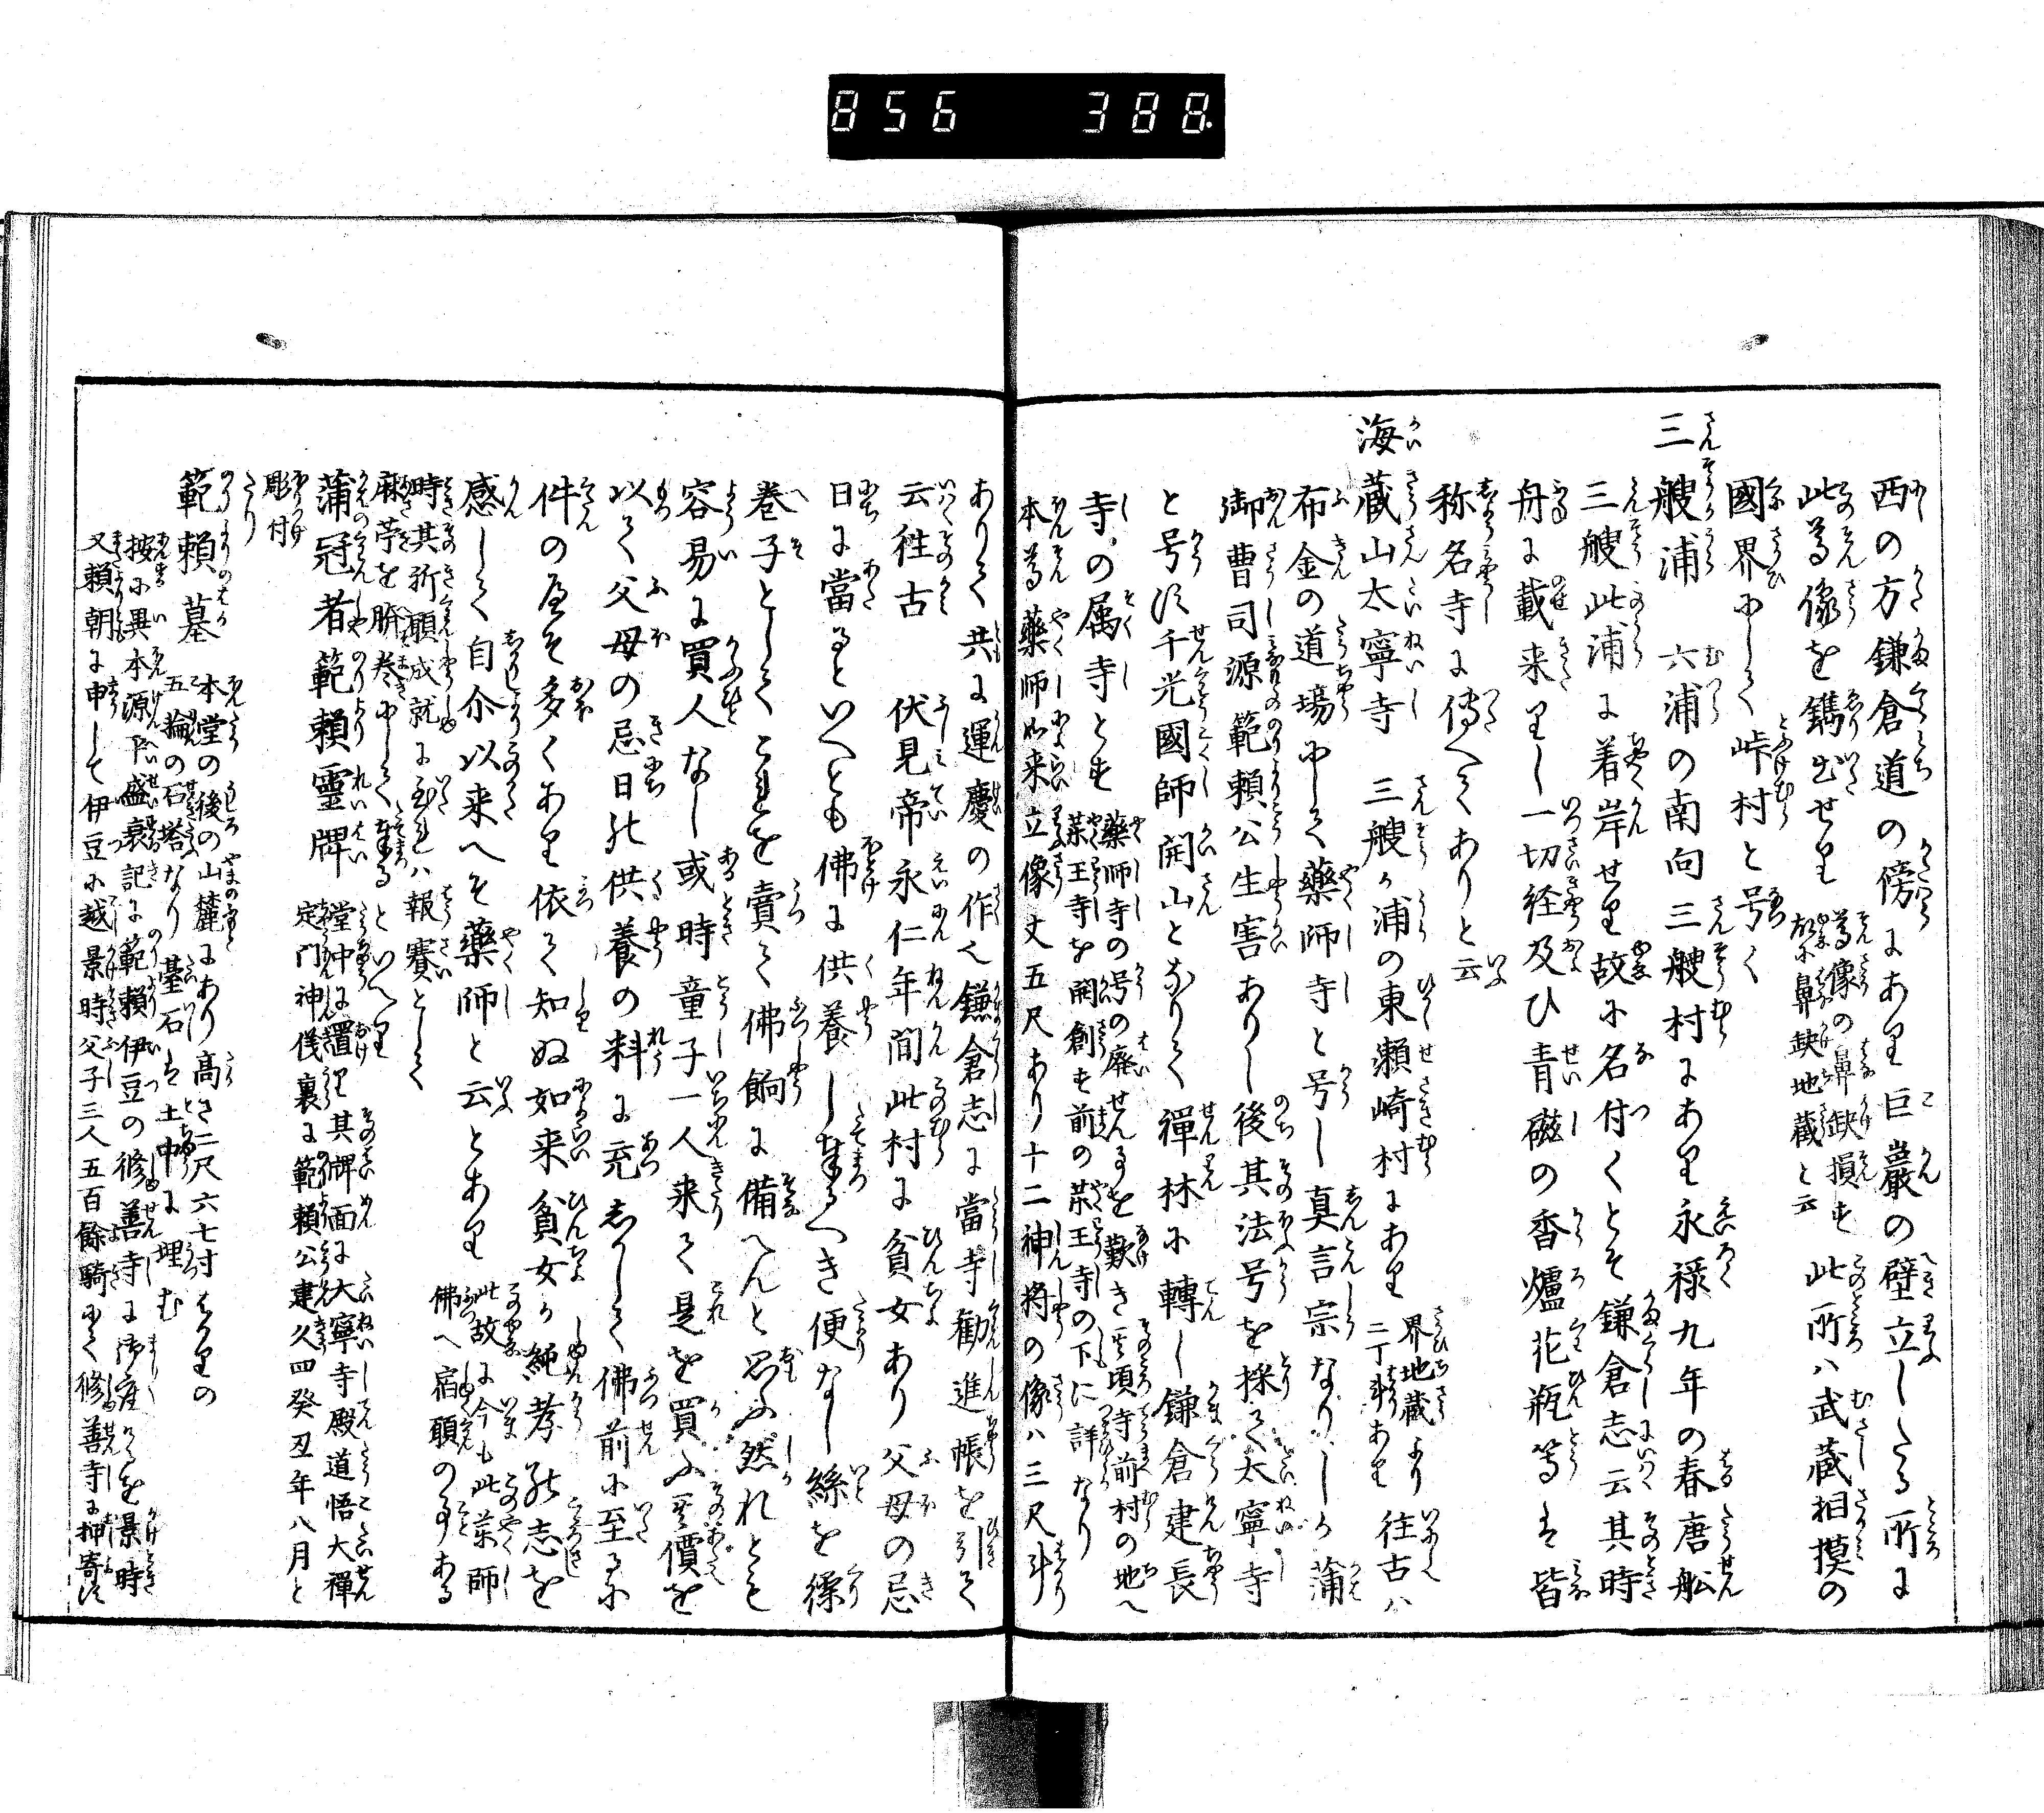 856 388
西の方鎌倉道の傍にあり巨巖の壁立したる所に
此尊像を鐫出せり尊像の鼻缺損す故に鼻缺地蔵と云此所ハ武蔵相摸の
國界にして峠村と号く
三艘浦 六浦の南向三艘村にあり永禄九年の春唐舩
三艘此浦に着岸せり故に名付くとそ鎌倉志云其時
舟に載来りし一切経及ひ青磁の香爐花瓶等は皆
称名寺に傳へてありと云
海蔵山太寧寺 三艘か浦の東瀬崎村にあり界地蔵より二丁斗あり往古ハ
布金の道場にして藥師寺と号し真言宗なりしか蒲
御曹司源範頼公生害ありし後其法号を採て太寧寺
と号け千光國師開山となりて禪林に轉し鎌倉建長
寺の属寺とす藥師寺の号の廃せんことを歎き其頃寺前村の地へ薬王寺を開創す前の薬王寺の下に詳なり
本尊藥師如来立像丈五尺あり十二神将の像ハ三尺斗
ありて共に運慶の作也鎌倉志に當寺勸進帳を引て
云徃古 伏見帝永仁年間此村に貧女あり父母の忌
日に當るといへとも佛に供養し奉るへき便なし絲を繰
巻子としてこれを賣て佛餉に備へんと思ふ然れとも
容易に買人なし或時童子一人来て是を買ふ其價を
以て父母の忌日の供養の料に充しかして佛前に至るに
件の巻そ多くあり依て知ぬ如来貧女か純孝の志を
感して自尒以来へそ藥師と云とあり此故に今も此薬師佛へ宿願の事ある
時其祈願成就に至れハ報賽として
麻苧を臍巻にして奉るといへり
蒲冠者範頼靈牌 堂中に置り其牌面に大寧寺殿道悟大禪定門神儀裏に範頼公建久四癸丑年八月と
彫付たり
範頼墓 本堂の後の山麓にあり高さ二尺六七寸はかりの五輪の石塔なり臺石は土中に埋む
按に異本源平盛衰記に範頼伊豆の修善寺に御座けるを景時
又頼朝に申して伊豆に越景時父子三人五百餘騎にて修善寺に押寄